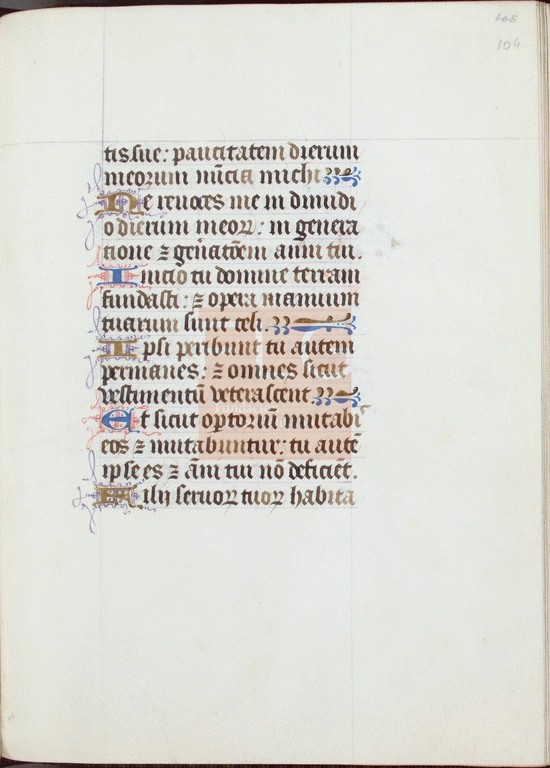 104
tis sue: paucitatem dierum
meorum nũcia michi
Ne reuoces me in dimidi
o dierum meoꝝ: in genera
cione ⁊ gñatõem anni tui.
Inicio tu domine terram
fundasti: ⁊ opera manuum
tuarum sunt celi.
Ipsi peribunt tu autem
permanes: ⁊ omnes sicut
vestimentũ veterascent
Et sicut optoriũ mutabi
eos ⁊ mutabuntur: tu autẽ
ipse es ⁊ ãni tui nõ deficiẽt.
Filij seruoꝝ tuoꝝ habita